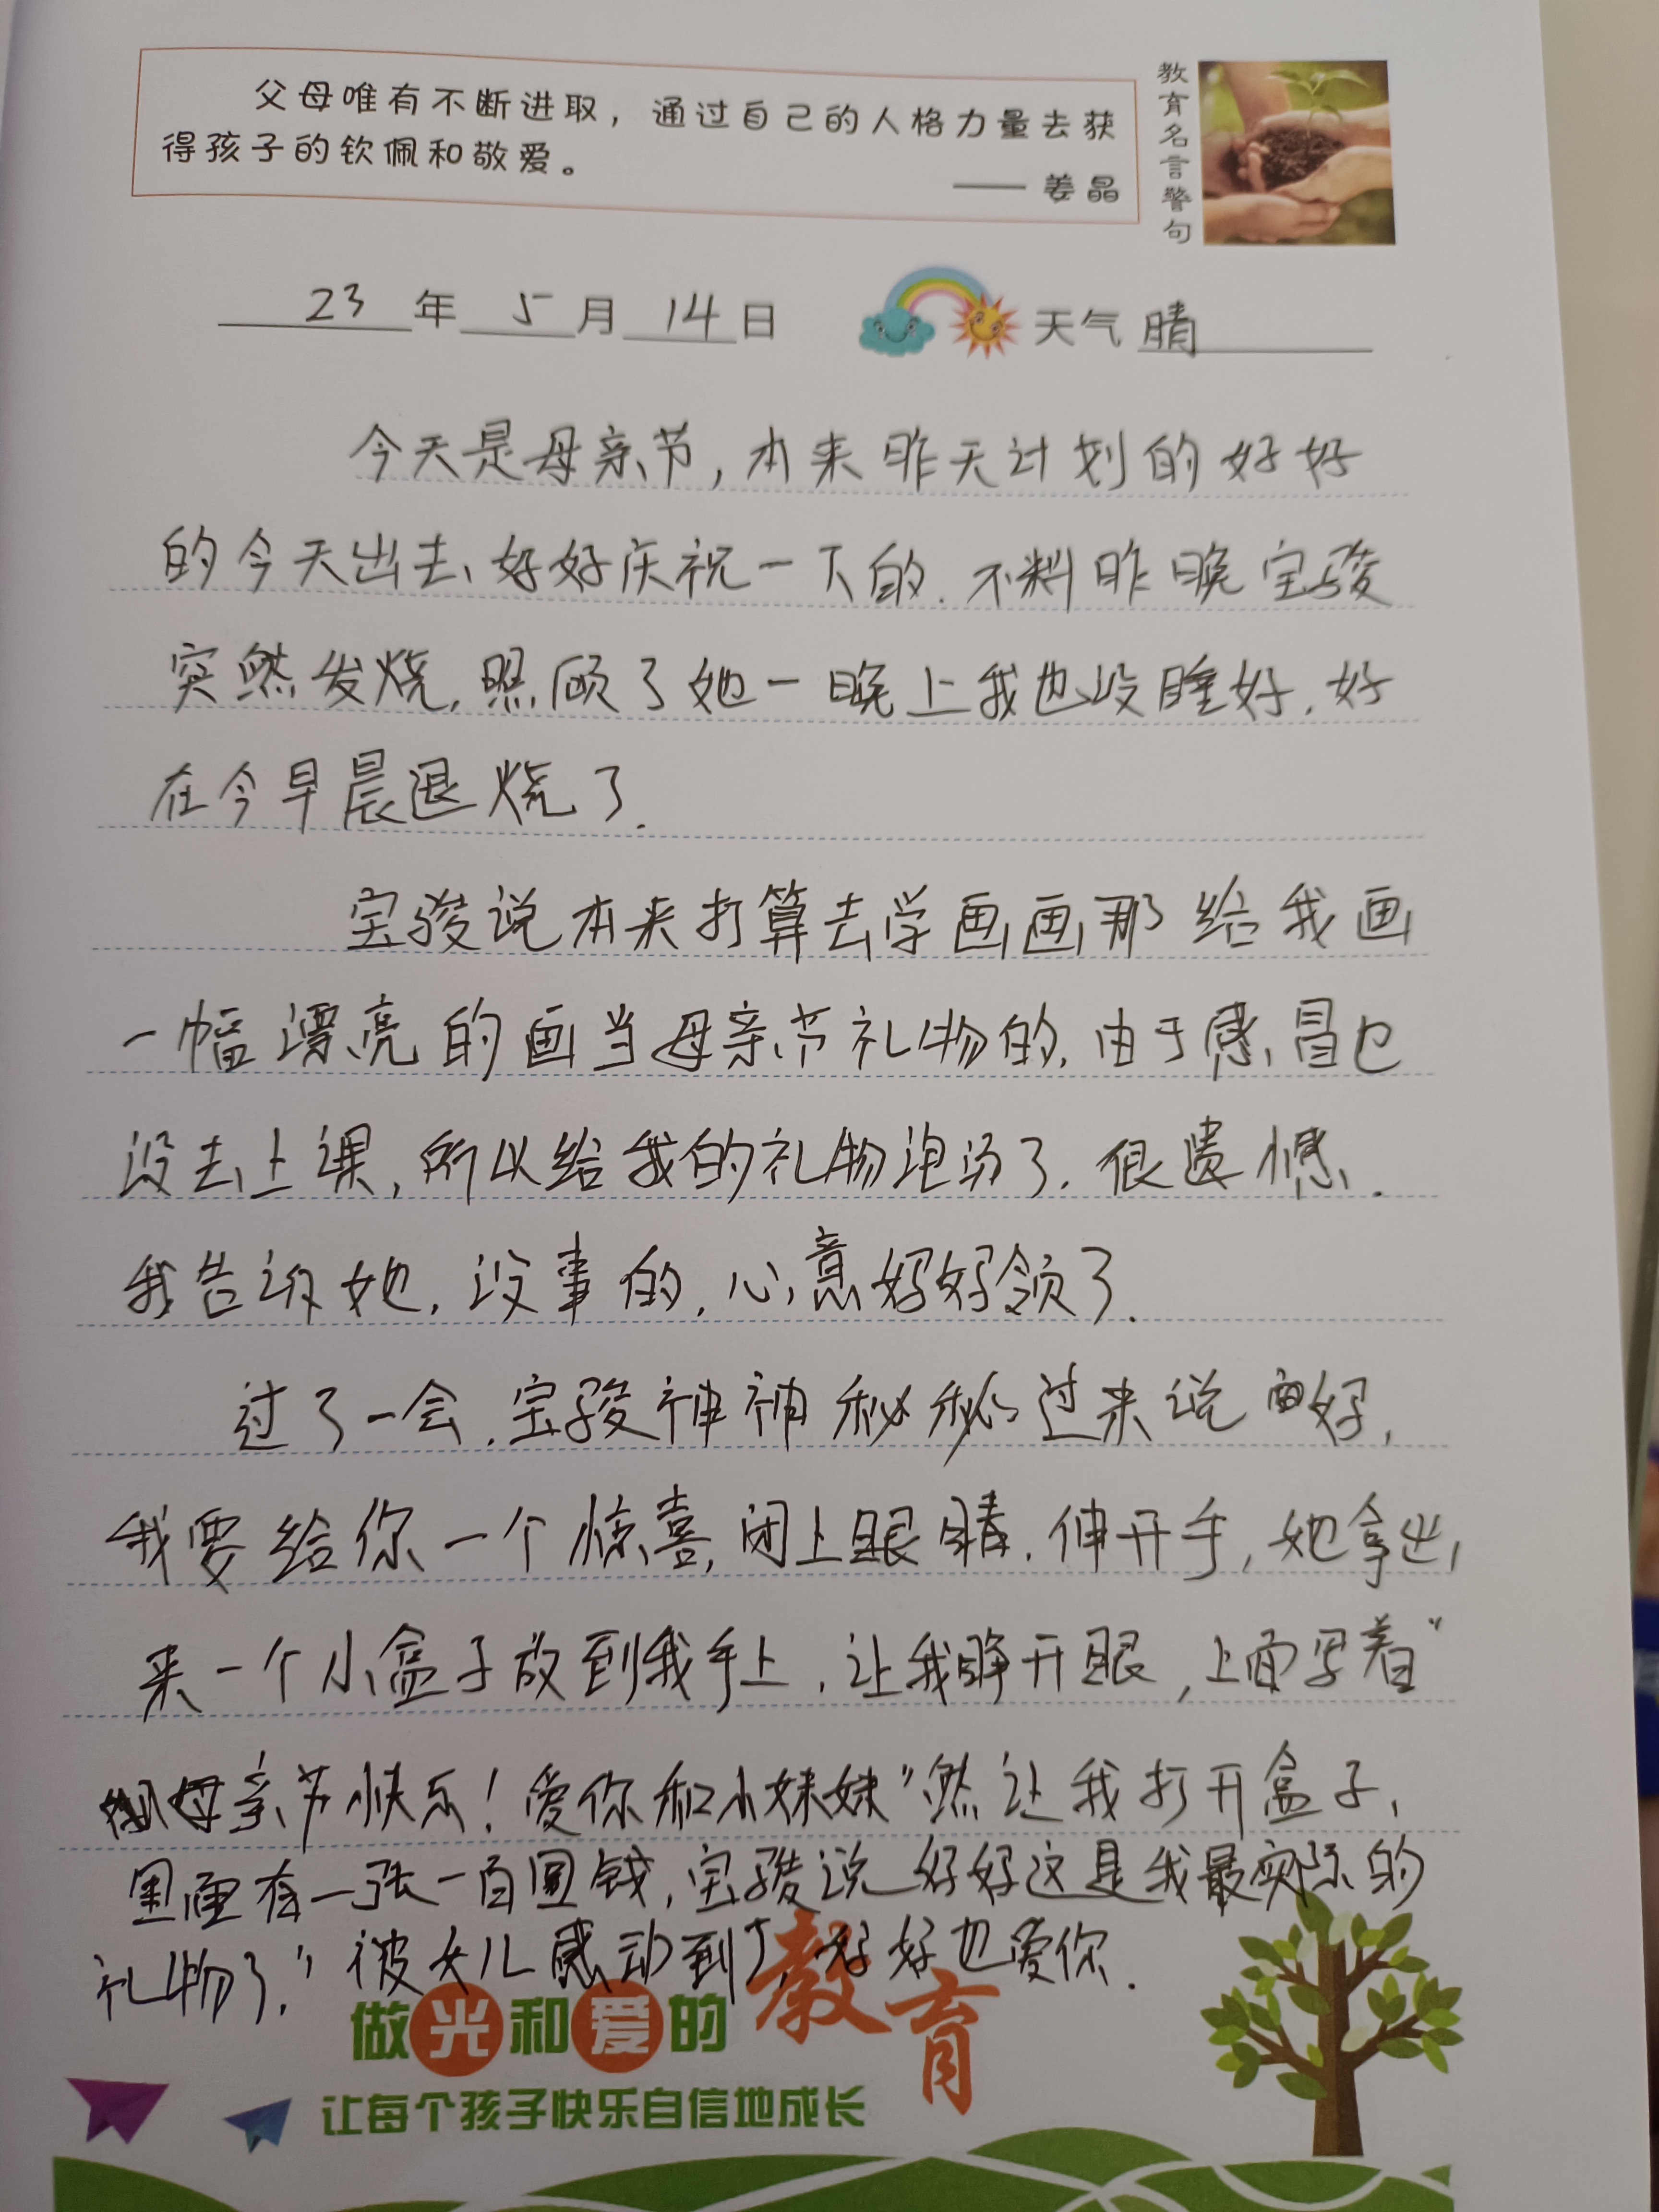 父母唯有不断进取，通过自己的人格力量去获
得孩子的钦佩和敬爱。
—— 姜晶
教育名言警句
23年5月14日 天气 晴
今天是母亲节，本来昨天计划的好好
的今天出去、好好庆祝一下的.不料昨晚宝骏
突然发烧,照顾了她一晚上我也没睡好.好
在今早晨退烧了.
宝骏说本来打算去学画画那给我画
一幅漂亮的画当母亲节礼物的.由于感冒也
没去上课,所以给我的礼物泡汤了.很遗憾.
我告诉她.没事的.心意好好领了.
过了一会.宝骏神神秘秘过来说好,
我要给你一个惊喜,闭上眼睛.伸开手,她拿出
来一个小盒子放到我手上.让我睁开眼,上面写着"
母亲节快乐!爱你和小妹妹"然让我打开盒子,
里面有一张一百圆钱,宝骏说好好这是我最实际的
礼物了."被女儿感动到了,好好也爱你.
做光和爱的教育
让每个孩子快乐自信地成长